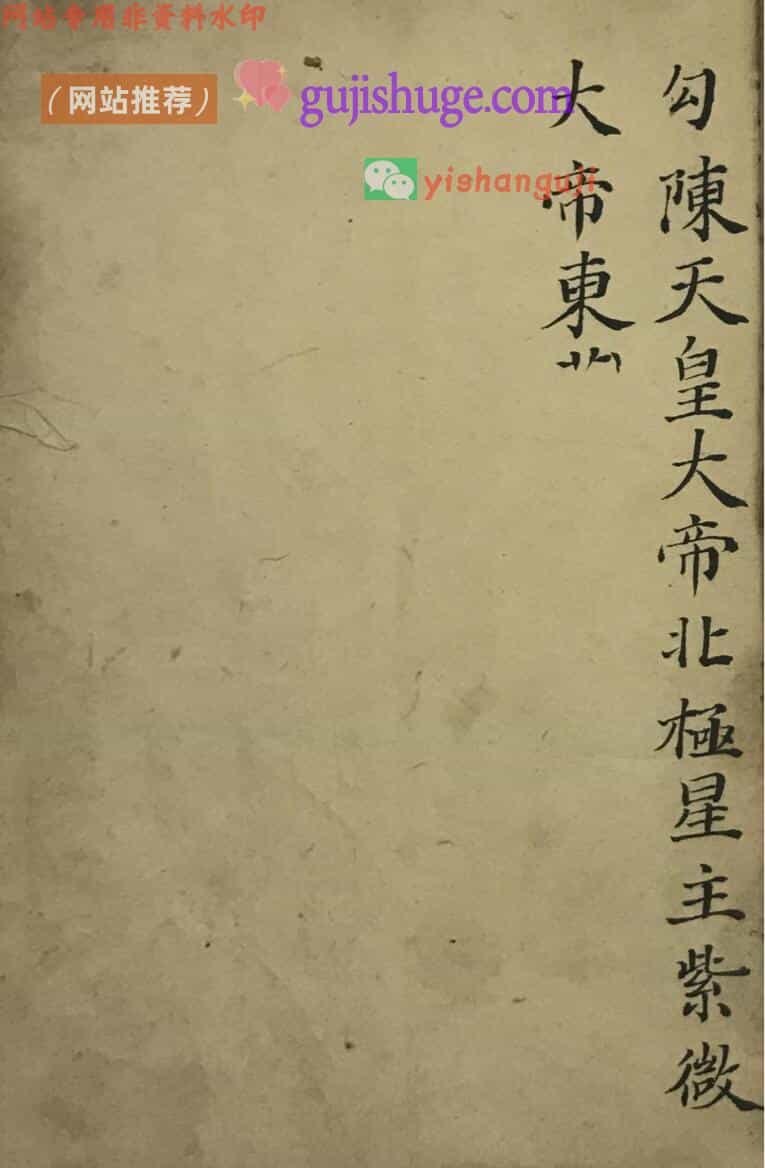 网站专用非资料水印
（网站推荐）
gujishuge.com
yishanguji
勾陳天皇大帝北極星主紫微
大帝東